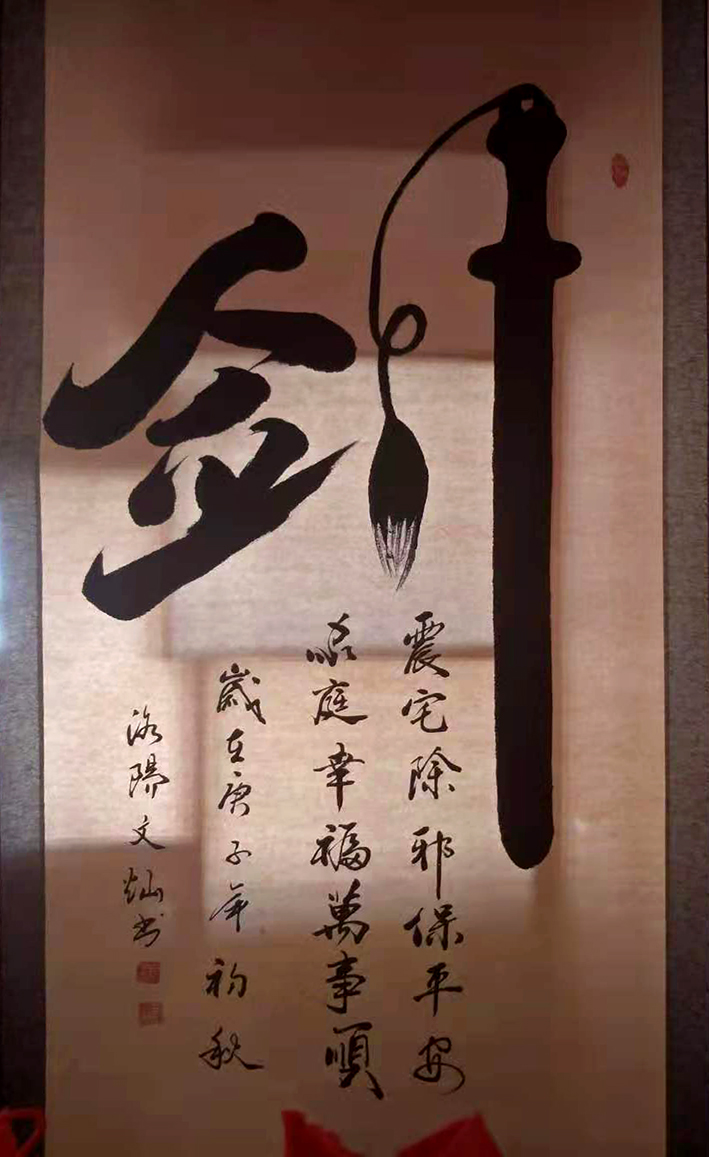 剑
震宅除邪保平安
家庭幸福萬事順
歲在庚子年初秋
洛陽文灿书